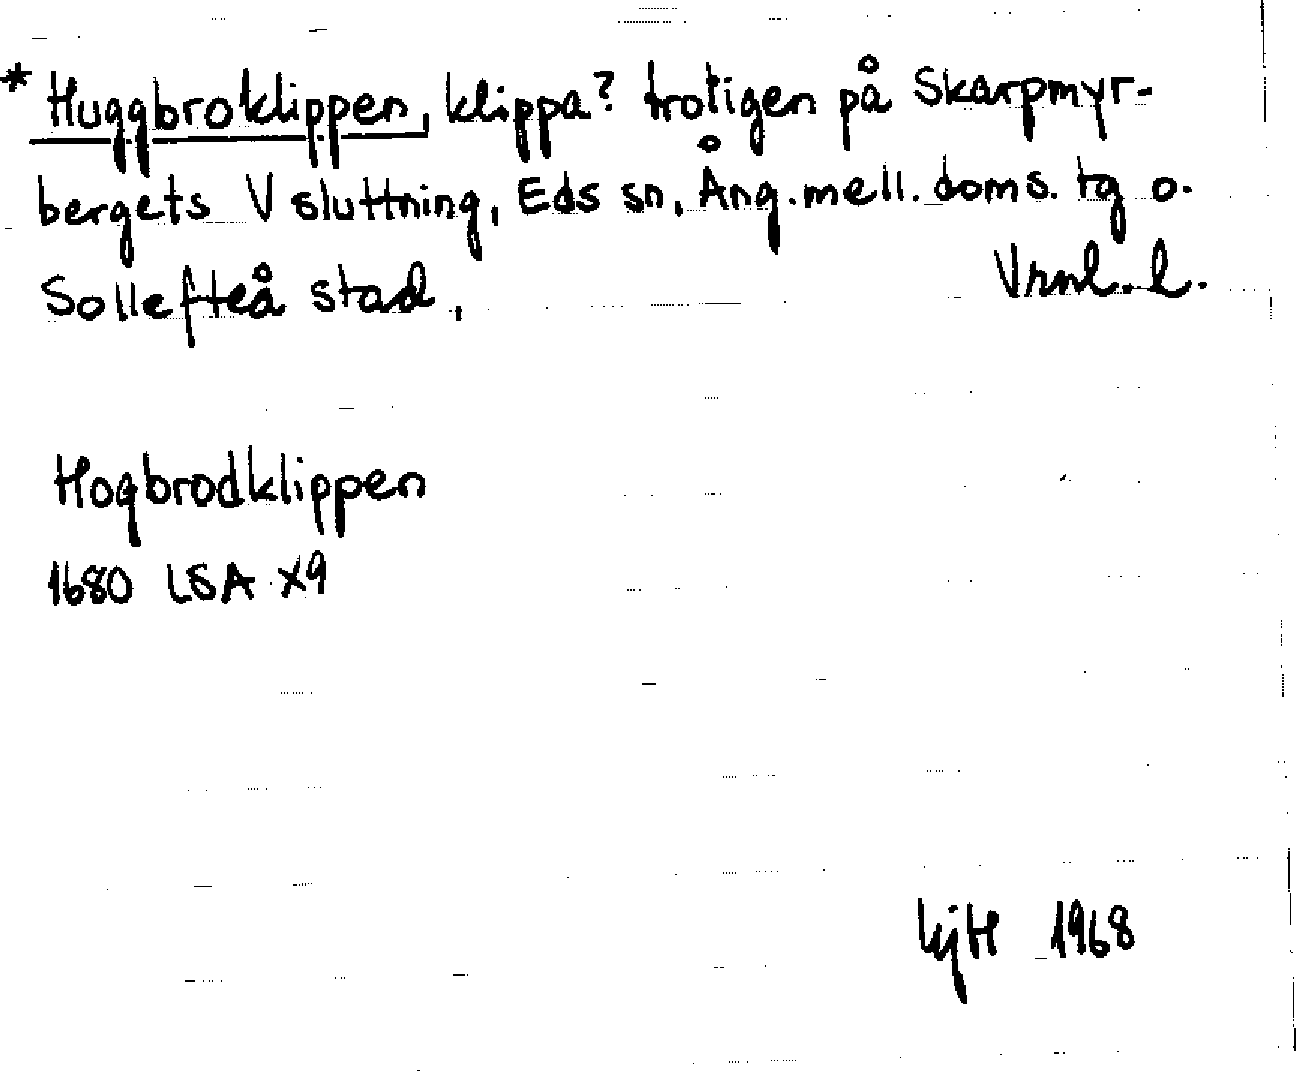 * Huggbroklippen, klippa? troligen på Skarpmyr-
bergets V sluttning, Eds sn, Ång. mell. doms. tg o.
Sollefteå stad, Vrnl. l.
Hogbrodklippen
1680 LSA X9
LjH 1968